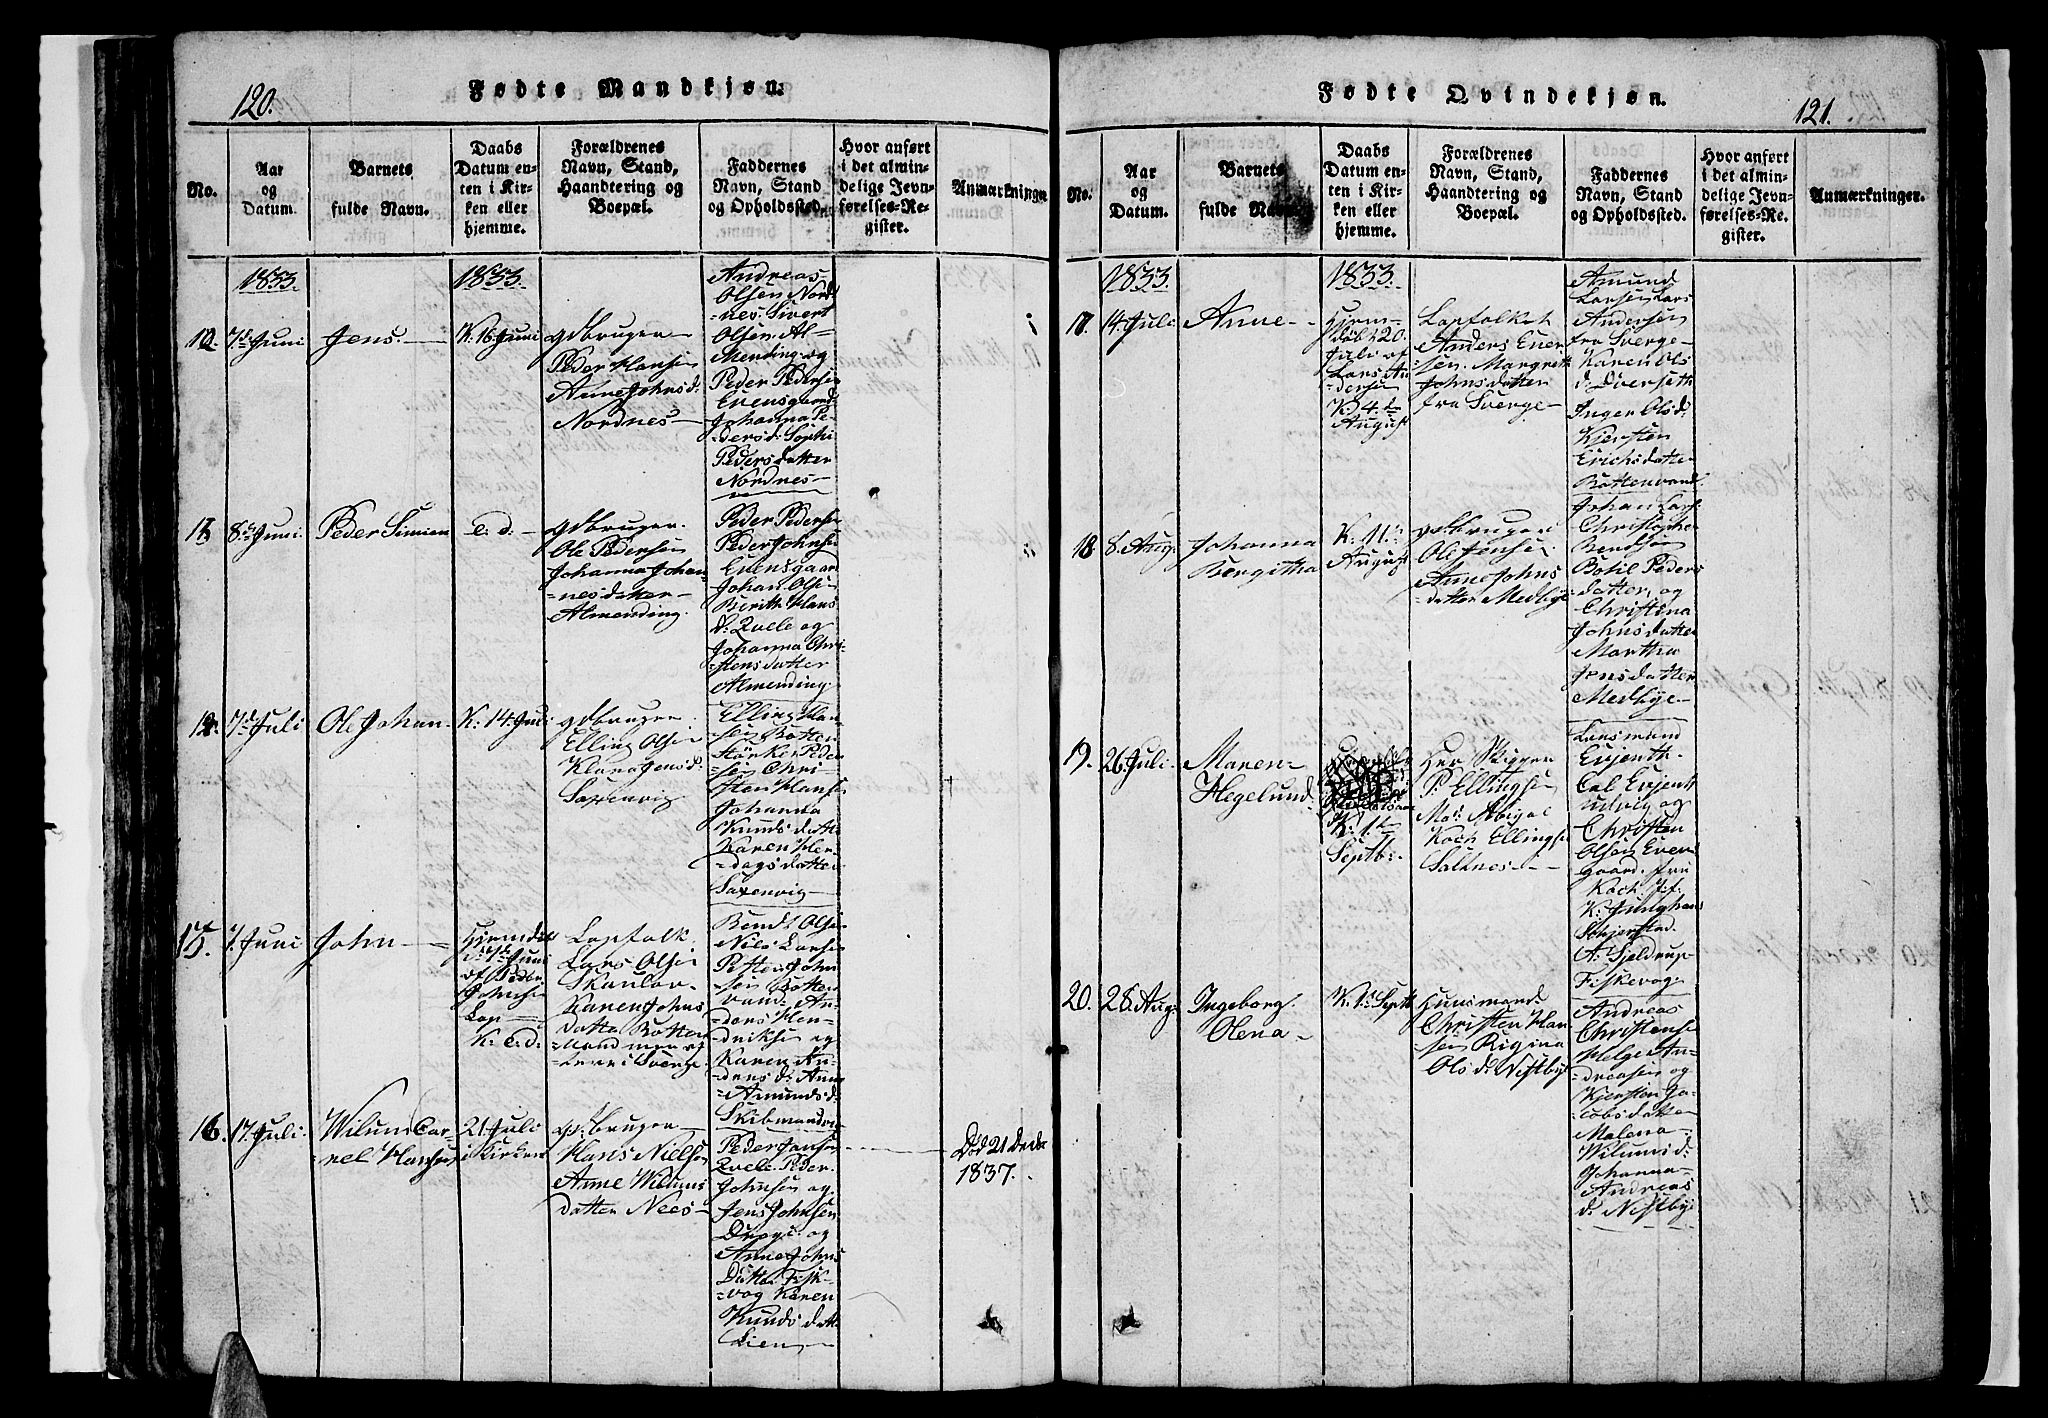 120.
Fødte Mandkjøn.
No.
Aar
og
Datum.
Barnets
fulde Navn.
Daabs
Datum en-
ten i Kir-
ken eller
hjemme.
Forældrenes
Navn, Stand,
Haandtering og
Boepæl.
Faddernes
Navn, Stand
og Opholdssted.
Hvor anført
i det almin-
delige Jevn-
førelses-Re-
gister.
Anmærkninger
1833.
1833.
12. 7d Juni
Jens.
K. 16. Juni
gdbruger
Peder Hansen
Anne Johnsd:
Nordnes
Andreas
Olsen Nord
nes. Sivert
Olsen Al-
mending og
Peder Pedersen
Evensgaard
Johanna Pe-
dersd: Sophi
Pedersdatter
Nordnes
13 8de Juni
Peder Simien
e. d.
gdbruger.
Ole Pedersen
Johanna Johan-
nesdatter
Almending.
Peder Pedersen
Peder Johnsen
Evensgaard
Johan Olsen
Berith Hans
d: Qvele og
Johanna Chri-
stensdatter
Almending
14. 7d Juli
Ole Johan
K. 14. Juli
gdbruger
Elling Olsen
Klara Jensd:
Saxenvig
Elling Han-
sen Botten
Stærker Peder
sen Chri-
sten Hansen
Johanna
Knuds datter
Karen Her-
dagsdatter
Saxenvig
15. 7. Juni
John
Hjemdøbt
d: 7de Juni
af Peder
Johnsen
Lap
K. e. d.
Lapfolk
Lars Olsen
Skaulov
Karen Johns
datter Botten
vand
i Sverge.
Bendt Olsen
Niels Larsen
Peter John
sen Botten
vand. An-
ders Hen-
driksen og
Karen An-
dersd: Anne
Amundsd:
Skibmandvig
16. 17. Juli
Wilum Cor-
nel Hansen
21. Juli
i Kirken
gdbruger
Hans Nielsen
Anne Wilums
datter Nees
Peder Jansen
Qvele Peder
Johnsen og
Jens Johnsen
Drage og
Anne Johns
Datter Fisk-
vog Karen
Knuds datter
Lien
Død 21 Decbr
1837.
Fødte Qvindekjøn.
121.
No.
Aar
og
Datum.
Barnets
fulde Navn
Daabs
Datum en-
ten i Kir-
ken eller
hjemme.
Forældrenes
Navn, Stand,
Haandtering og
Boepæl.
Faddernes
Navn, Stand
og Opholdssted.
Hvor anført
i det almin-
delige Jevn-
førelses-Re-
gister.
Anmærkninger.
1833.
1833.
17. 14. Juli
Anne
Hjem
døbt 20.
Juli af
Lars An-
dersen
K. 4de
August
Lapfolket
Anders Ener
sen. Margreth
Johnsdatter
fra Sverge
Amund
Larsen Lars
Andersen
fra Sverge
Karen Ols
d: Øverseth
Inger Olsd:
Kjersten
Erichsdatter
Bottenvand.
18 8. Aug.
Johanna
Bergitha
K. 11te
August
gdbruger
Ole Jensen
Anne Johns
datter Medbye
Johan Lars
Christopher
Bendtsen
Botil Peders
datter, og
Christina
Johnsdatter
Martha
Jensdatter
Medbye
19. 26. Juli.
Maren
Hegelund
K. 1te
Septb:
Her Skipper
P. Ellingsen
Mad: Abigal
Koch Ellingsen
Saltnes
Lensmand
Evjenth.
Cal Evjenth
Udvig og
Christen
Olsen Evens
gaard. fru
Koch Jf.
K. Junghans
Schjerstad.
A. Sjeldrup
Fiskevog
20. 28. Aug.
Ingeborg
Olena
K. 1te Septb
Huusmand
Christen Han
sen Rigina
Olsd: Nistbye
Andreas
Christensen
Helge An-
dreasen og
Kjersten Ja-
cobsdatter
Malena
Wilumsd:
Johanna
Andreas
d: Nistbye